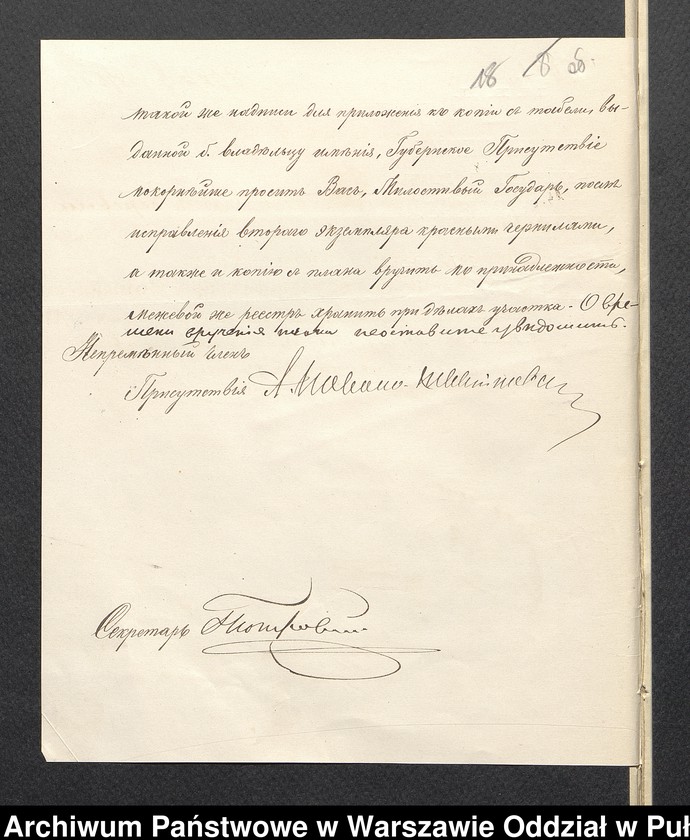 такой же надписи для приложенія къ копіи съ табели, вы-
данной б. владѣльцу имѣнія, Губернское Присутствіе
покорнѣйше проситъ Васъ, Милостивый Государь, послѣ
исправленія второго экземпляра красными чернилами,
а также и копію съ плана вручить по принадлежности,
межевой же реестръ хранить при дѣлахъ участка. О вре-
мени врученія не оставьте увѣдомить.
Непремѣнный Членъ
Присутствія
Секретарь
Archiwum Państwowe w Warszawie Oddział w Puł